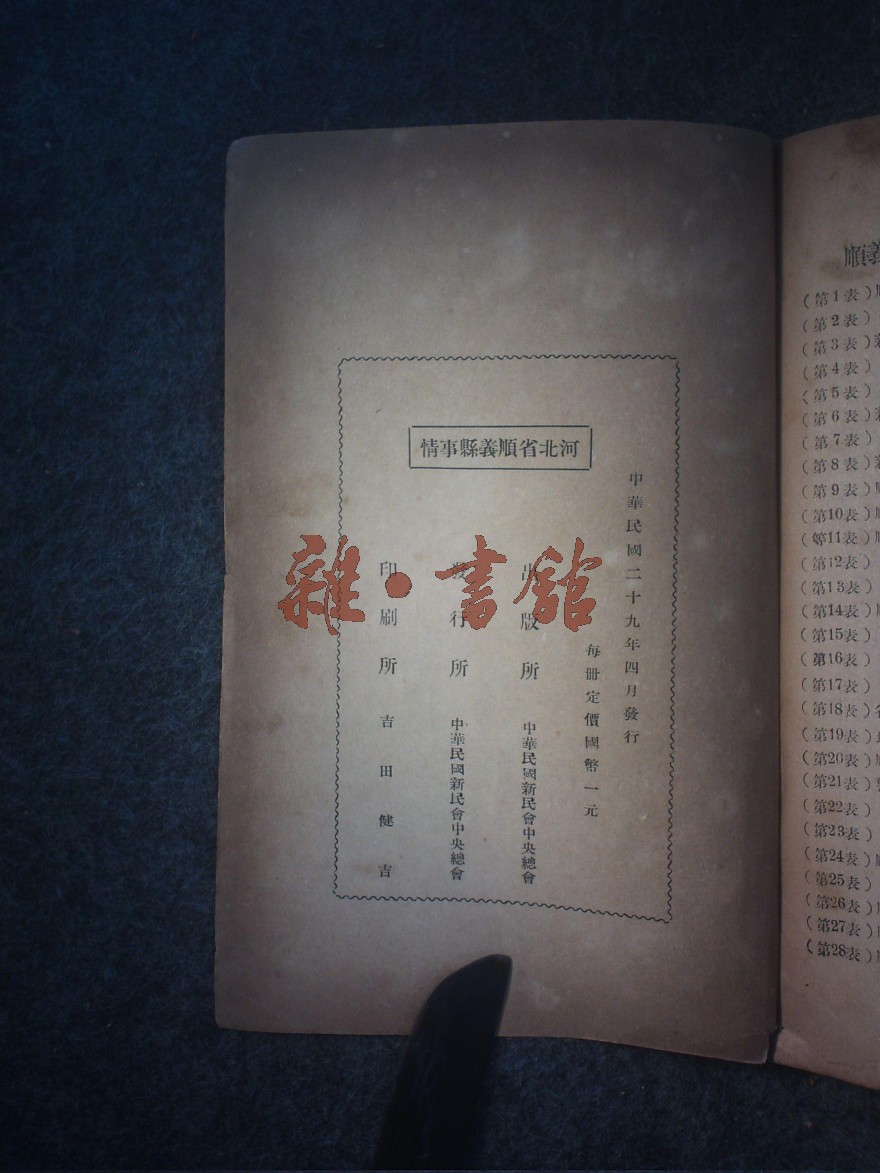 河北省順義縣事情
中華民國二十九年四月發行
每冊定價國幣一元
出版所 中華民國新民會中央總會
發行所 中華民國新民會中央總會
印刷所 吉田健吉
雜·書館
順義
(第1表)
(第2表)
(第3表)
(第4表)
(第5表)
(第6表)
(第7表)
(第8表)
(第9表)
(第10表)
(第11表)
(第12表)
(第13表)
(第14表)
(第15表)
(第16表)
(第17表)
(第18表)
(第19表)
(第20表)
(第21表)
(第22表)
(第23表)
(第24表)
(第25表)
(第26表)
(第27表)
(第28表)